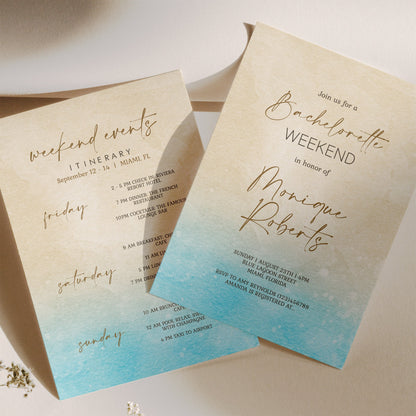 weekend events
ITINERARY
September 12 - 14 | MIAMI FL
friday
2 - 5 PM CHECK IN, RIVIERA
RESORT HOTEL
7 PM DINNER, THE FRENCH
RESTAURANT
10PM COCKTAILS, THE FAMOUS
LOUNGE BAR
saturday
9 AM BREAKFAST, 
CAFE
11 AM 
5 PM 
7 PM 
sunday
10 AM BRUNCH
CAFE
12 AM POOL RELAX, 
WITH CHAMPAGNE
4 PM TAXI TO AIRPORT
Join us for a
Bachelorette
WEEKEND
in honor of
Monique
Roberts
SUNDAY | AUGUST 25TH | 6PM
BLUE LAGOON STREET
MIAMI, FLORIDA
RSVP TO AMY REYNOLDS
AMANDA IS REGISTERED AT